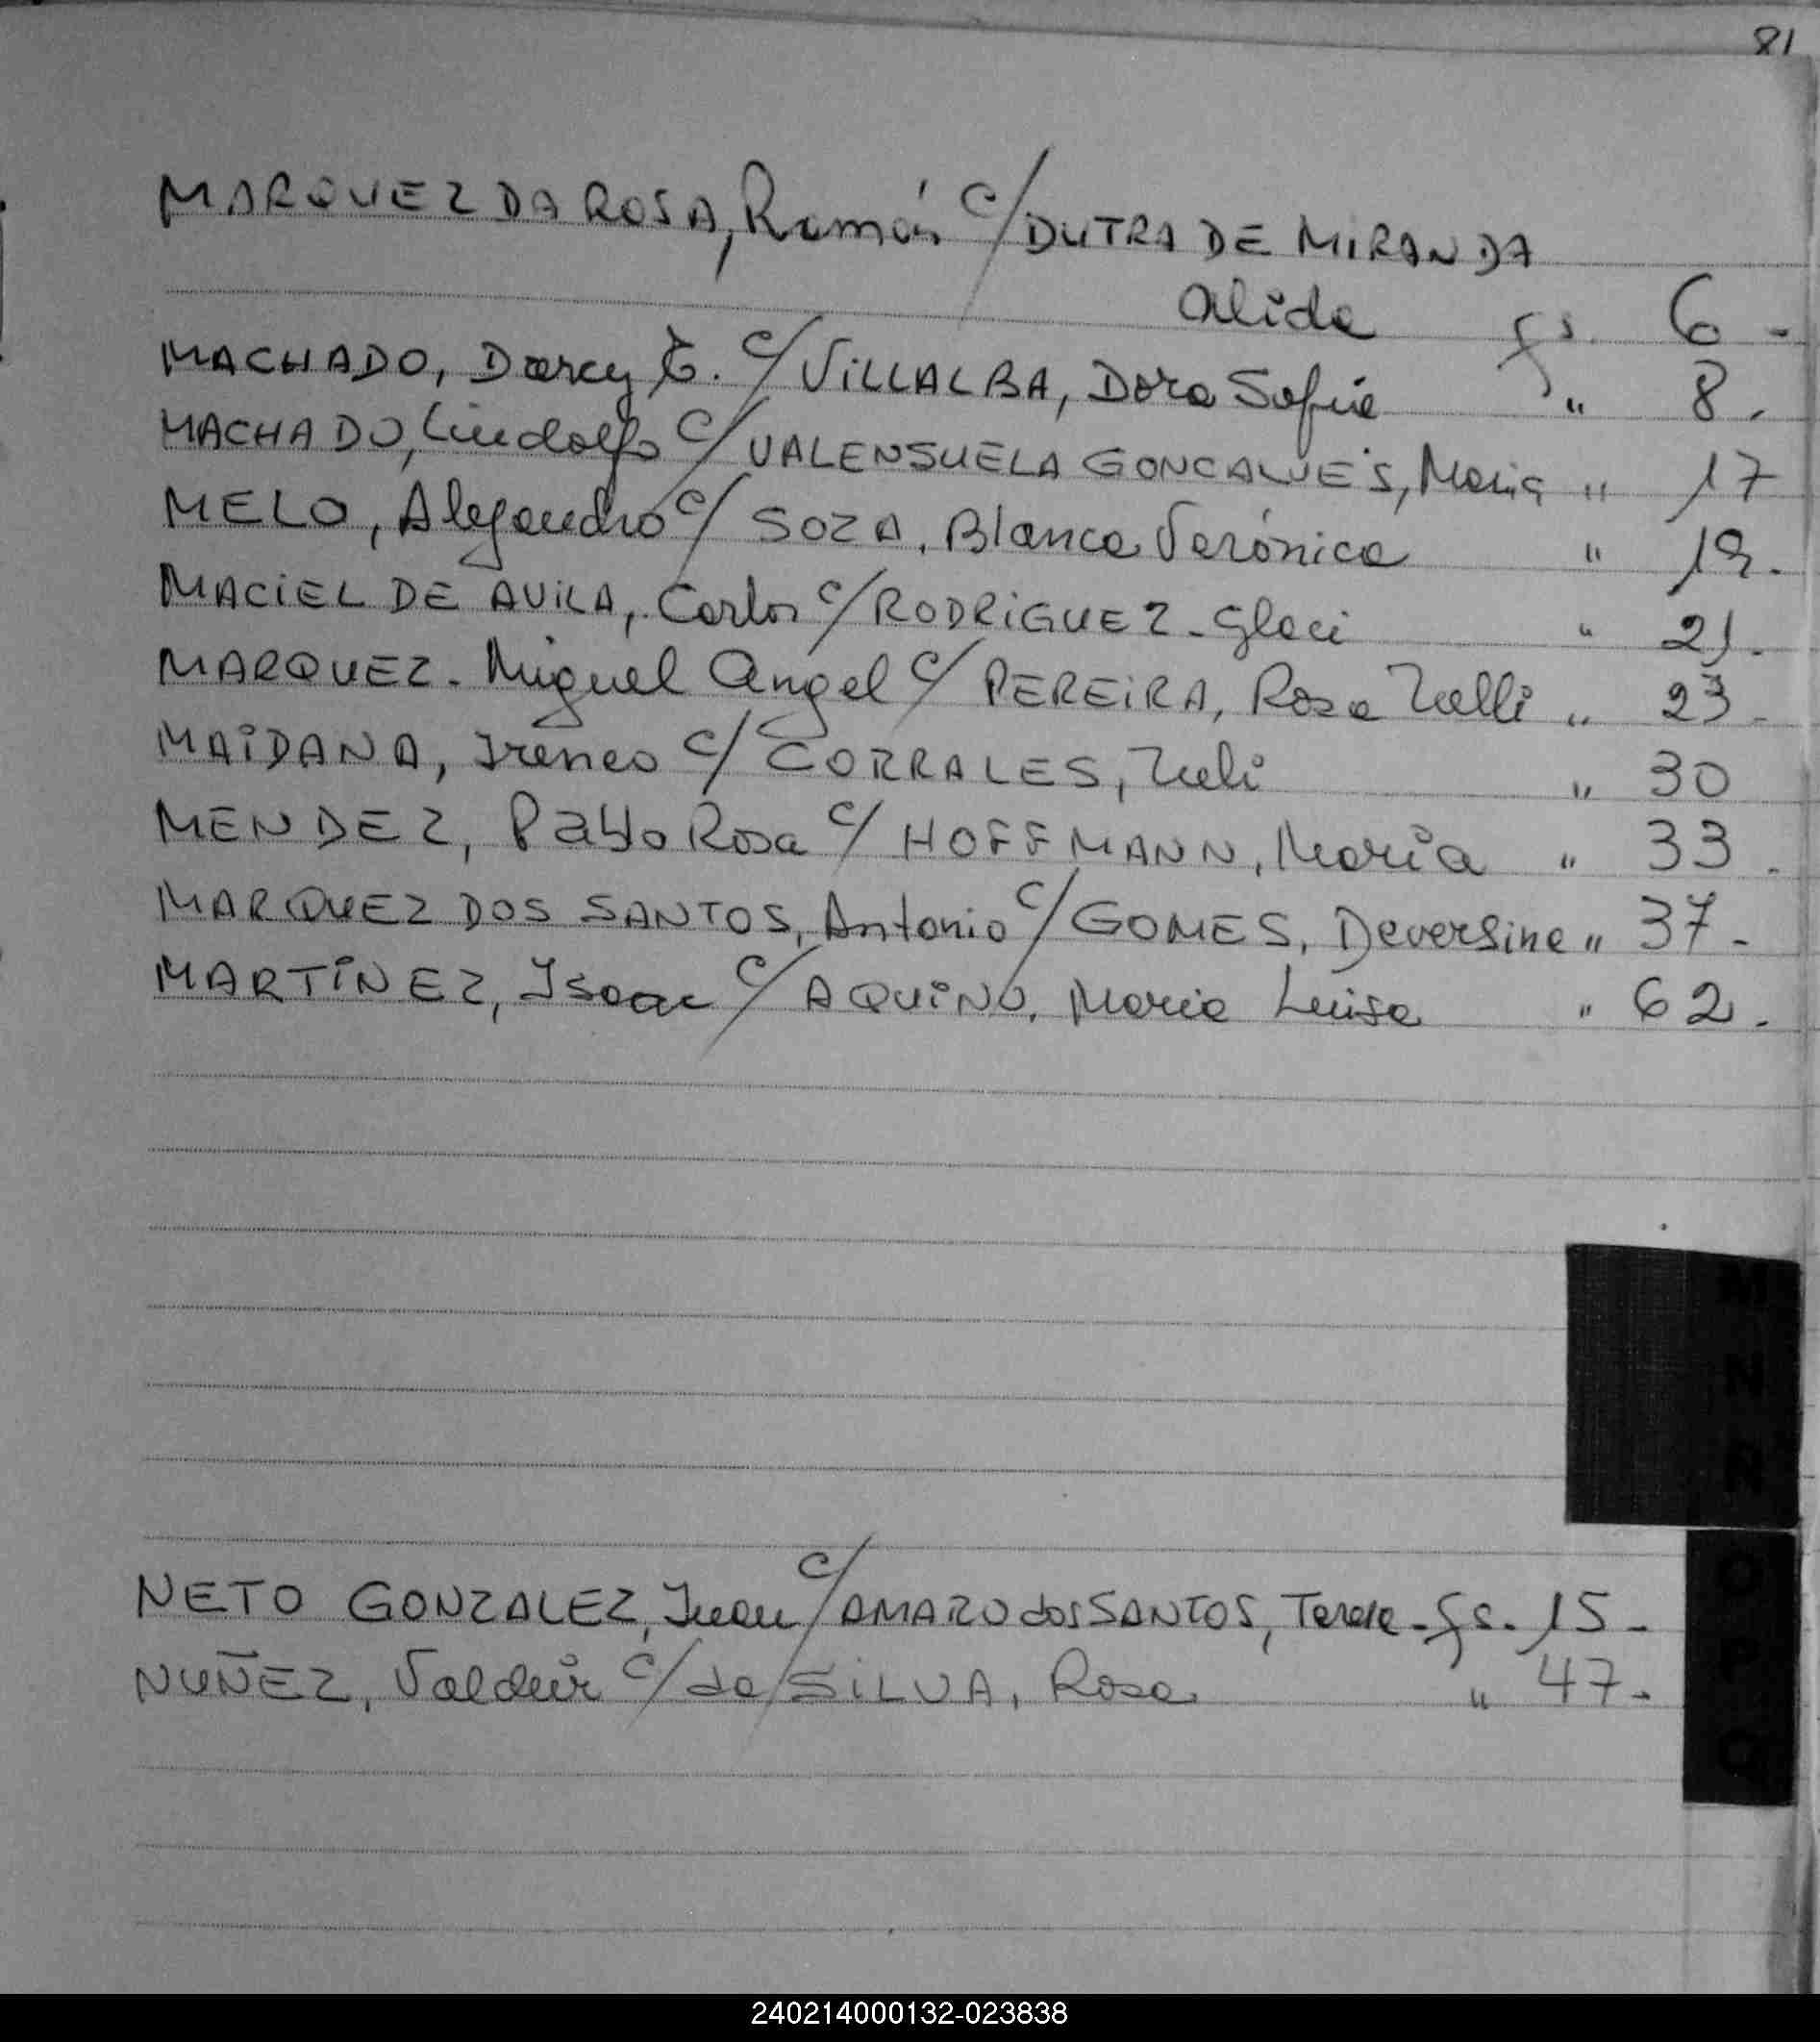 81
MARQUEZ DA ROSA, Ramón c/ DUTRA DE MIRANDA
Alida fs. 6 -
MACHADO, Darcy T. c/ VILLALBA, Dora Sofia " 8.
MACHADO, Lindolfo c/ VALENSUELA GONCALVES, Maria " 17
MELO, Alejandro c/ SOZA, Blanca Verónica " 19.
MACIEL DE AVILA, Carlos c/ RODRIGUEZ - Glaci " 21.
MARQUEZ - Miguel Angel c/ PEREIRA, Rosa Zulli " 23 -
MAIDANA, Ireneo c/ CORRALES, Zuli " 30
MENDEZ, Rosa c/ HOFFMANN, Maria " 33.
MARQUEZ DOS SANTOS, Antonio c/ GOMES, Deversina " 37 -
MARTÍNEZ, Isaac c/ AQUINO, Maria Luisa " 62.
M
N
Ñ
NETO GONZALEZ, Juan c/ AMARO dos SANTOS, Teresa - fs. 15 -
NUÑEZ, Valdeir c/ da SILVA, Rosa " 47 -
O
P
Q
240214000132-023838